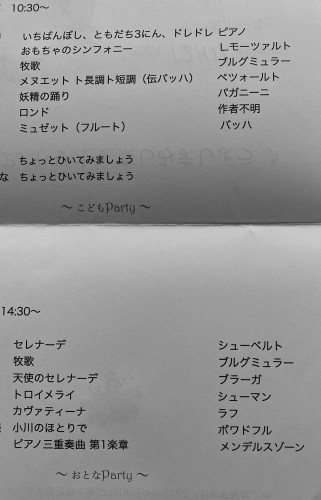 10:30〜
いちばんぼし、ともだち3にん、ドレドレ ピアノ
おもちゃのシンフォニー L.モーツァルト
牧歌 ブルグミュラー
メヌエット ト長調ト短調（伝バッハ） ペツォールト
妖精の踊り パガニーニ
ロンド 作者不明
ミュゼット（フルート） バッハ
ちょっとひいてみましょう
な ちょっとひいてみましょう
〜 こどもParty 〜
14:30〜
セレナーデ シューベルト
牧歌 ブルグミュラー
天使のセレナーデ ブラーガ
トロイメライ シューマン
カヴァティーナ ラフ
小川のほとりで ボワドフル
ピアノ三重奏曲 第1楽章 メンデルスゾーン
〜 おとなParty 〜